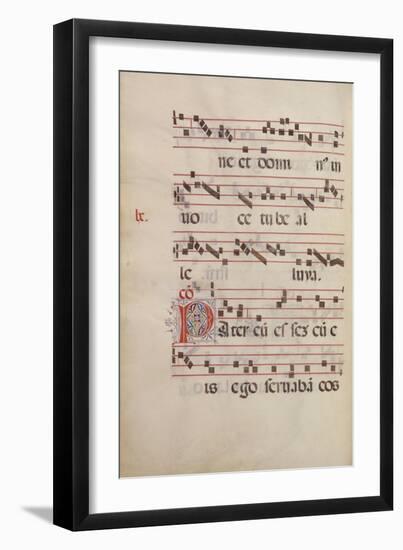 ne et domi nꝰ in
lx.
uo ce tu be al
le luya.
co
Pater cū es ses cū e
is ego seruabā eos